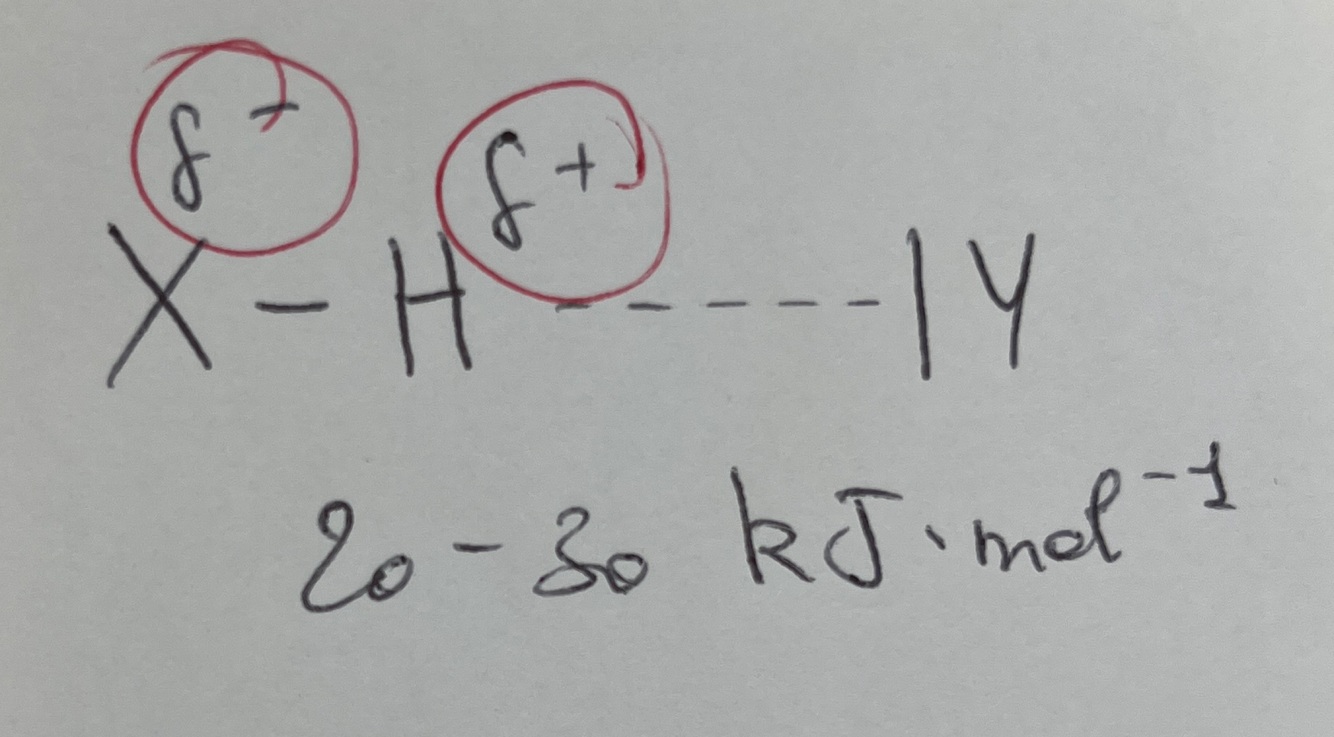 δ- δ+
X - H - - - - - |Y
20 - 30 kJ·mol⁻¹